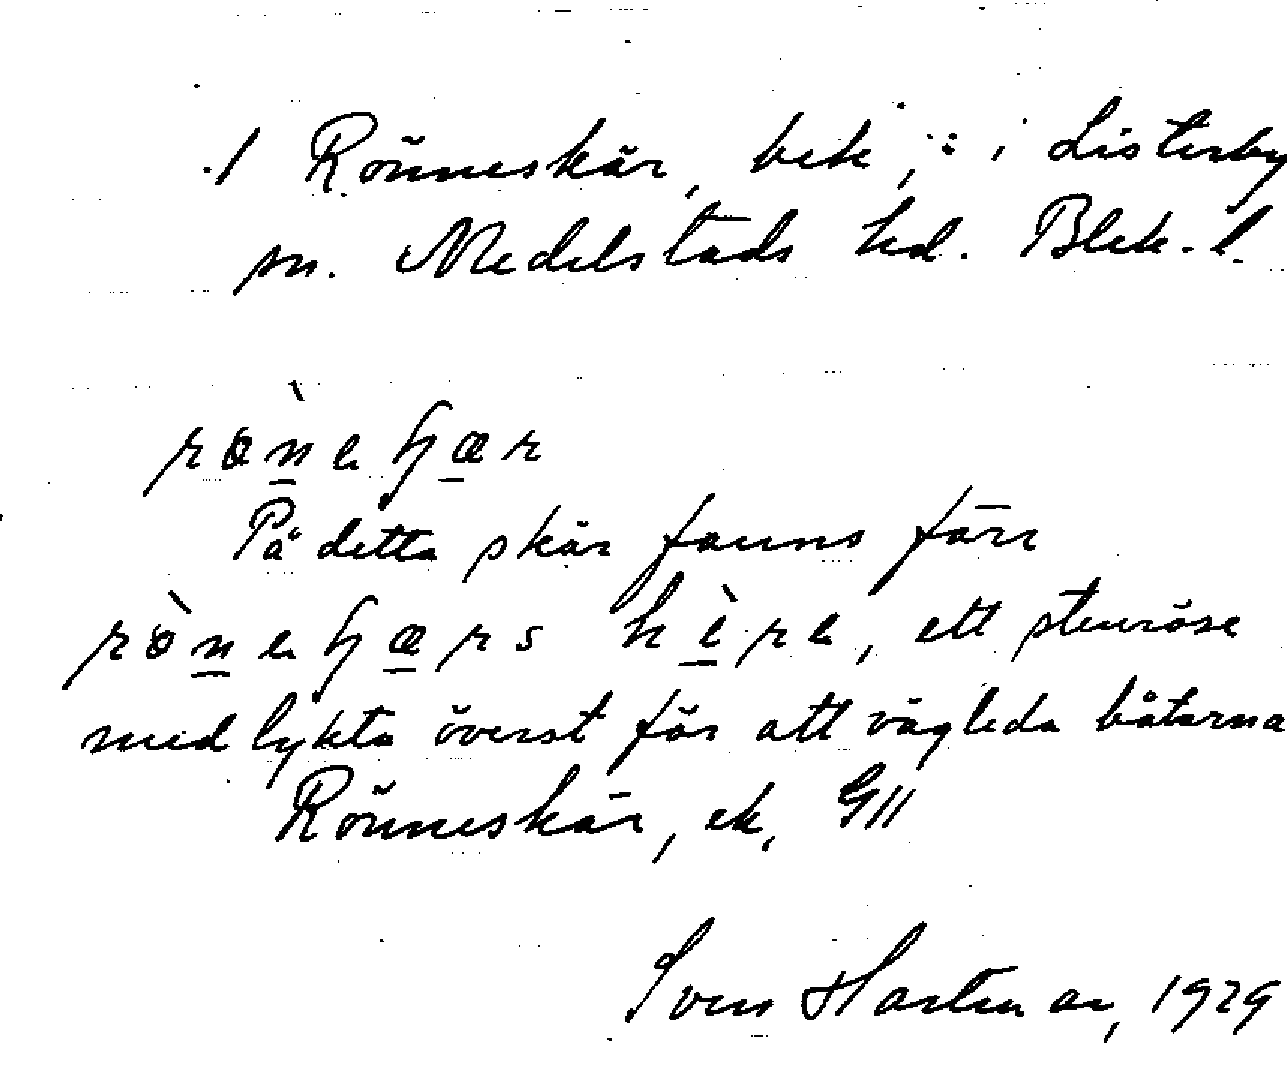 ./ Rönneskär, bek, : i Listerby
sn. Medelstads hd. Blek. l.
På detta skär fanns förr
, ett stenröse
med lykta överst för att vägleda båtarna
Rönneskär, ek, G11
Sven 1929